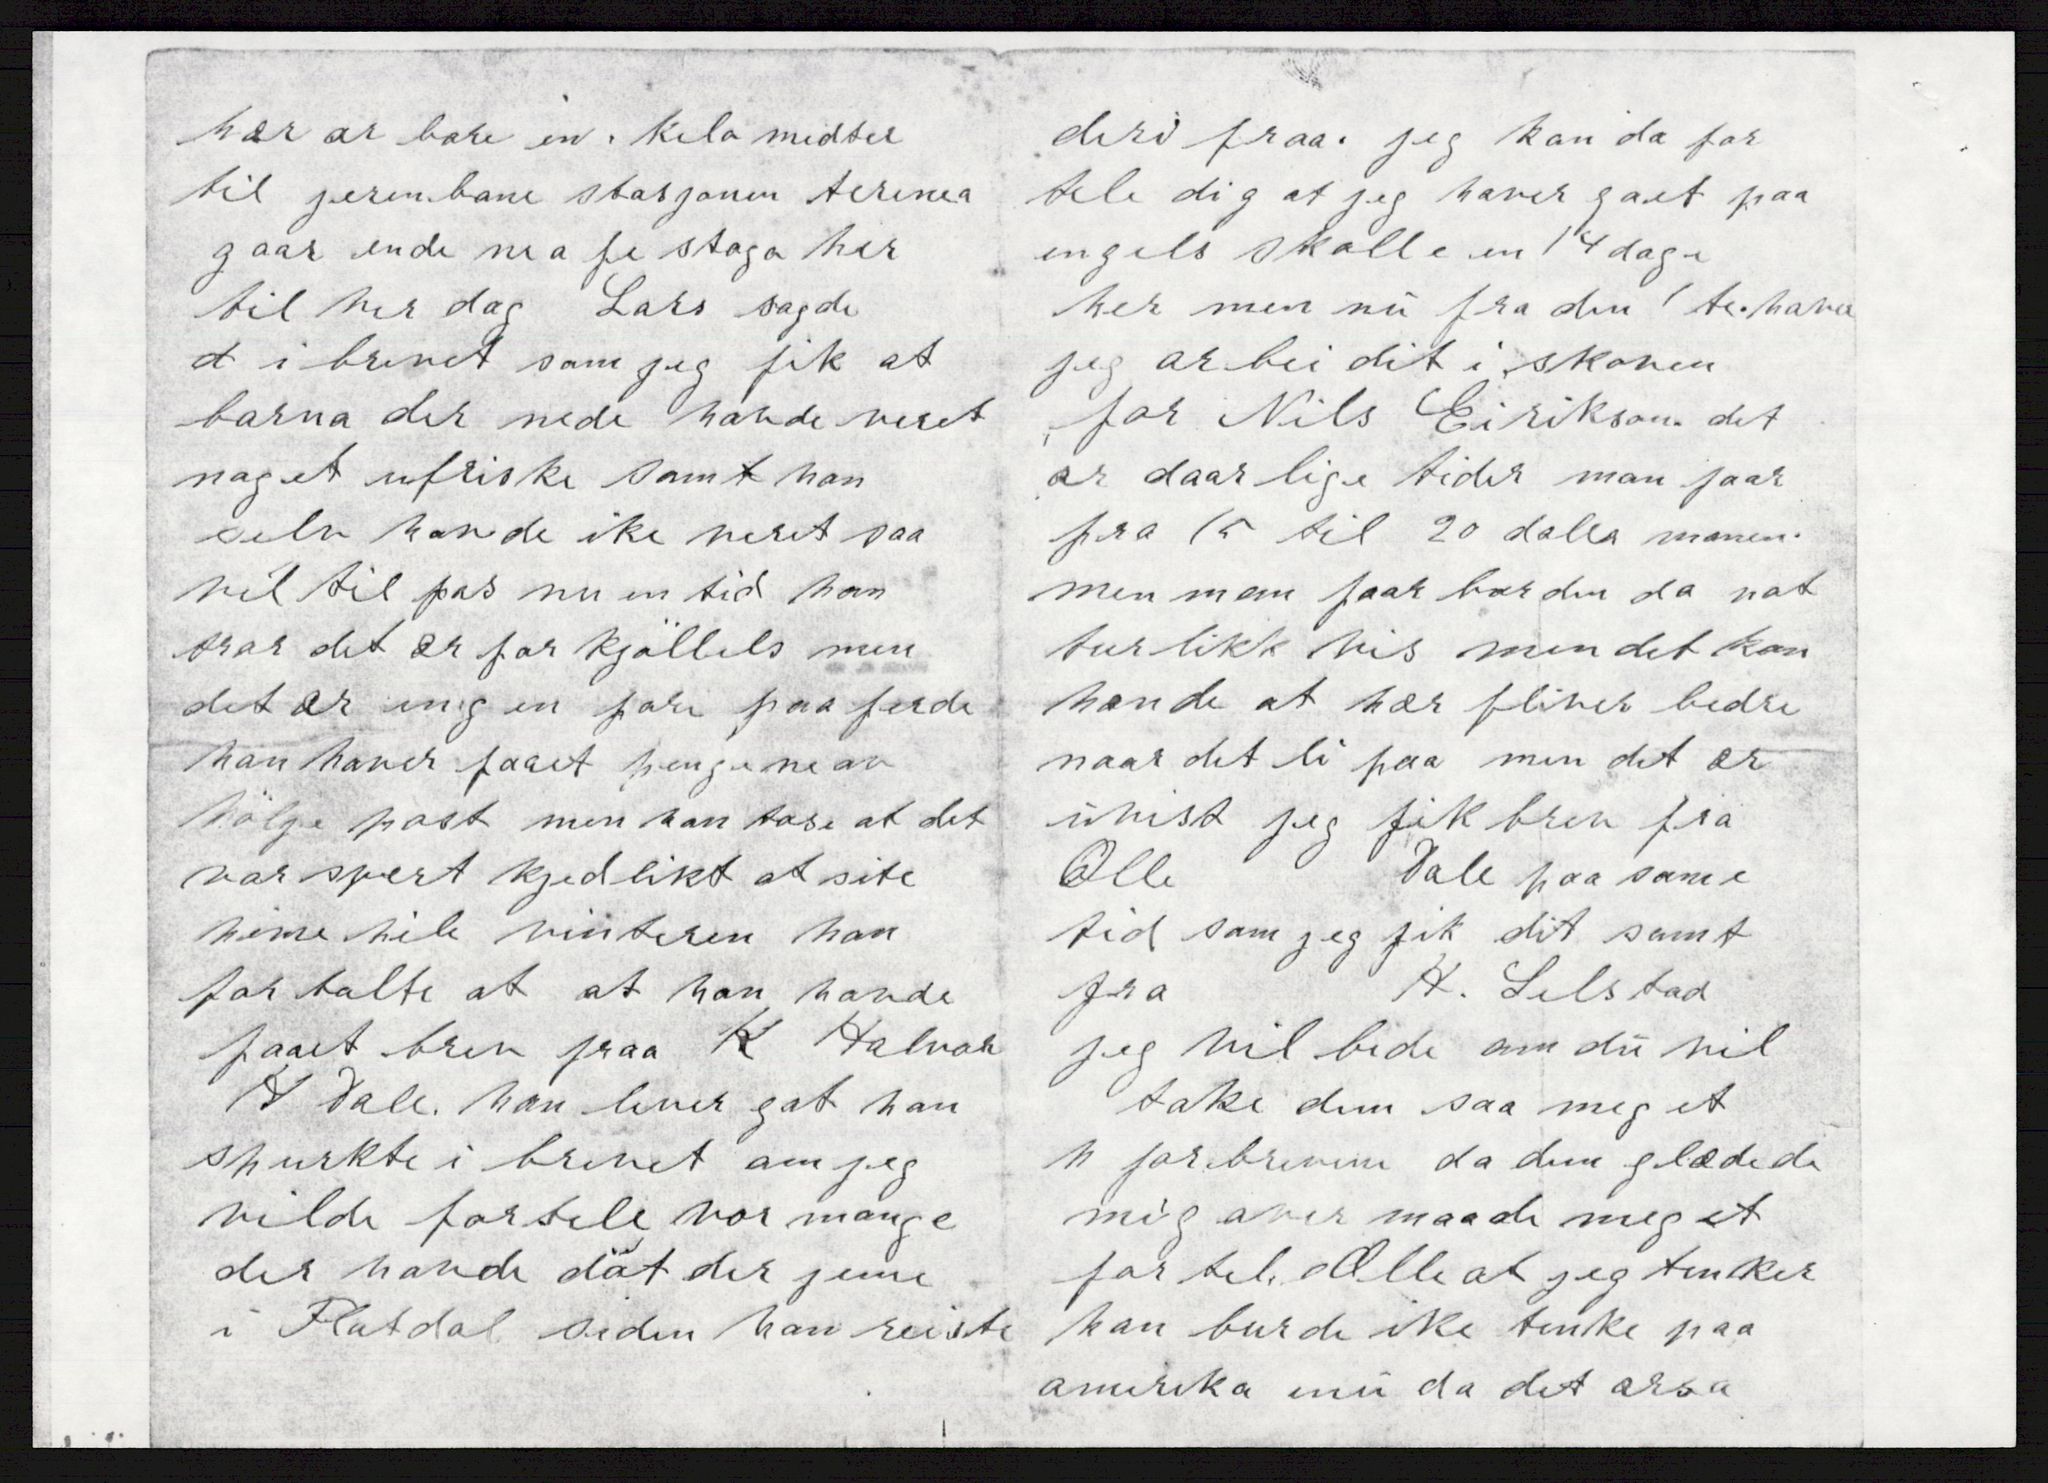 hær ær bare en. kilo medter
til jerenbane stasjonen terenea
gaar ende nea fe stoga her
til her dag Lars sagde
d i brevet som jeg fik at
barna der nede havde veret
noget ufriske samt han
selv havde ike veret saa
vel til pas nu en tid han
trar det ær for kjöllels men
det ær ingen fare paa ferde
han haver faaet pengene av
hölje post men han tose at det
var svert kjedlikt at site
hime hele vinteren han
for talte at at han havde
faaet brev fraa K Halvor
H Dale. han lever gat han
spurkte i brevet om jeg
vilde fortele vor mange
der havde döt der jeme
i Flatdal siden han reiste
deri fraa. jeg kan da for
tele dig at jeg haver gaaet paa
engels skolle en 14 dage
her men nú fra den 1 te. haver
jeg arbei dit i skoven
for Nils Eirikson. det
ær daarlige tider man faar
fra 15 til 20 dalla manen.
men man faar borden da nat
turlikk vis men det kan
hænde at hær fliver bedre
naar det li paa men det ær
úvist jeg fik brev fra
Olle Dale paa same
tid som jeg fik dit samt
fra H. Lelstad
jeg vil bede om dú vil
take dem saa meget
h for brevene da dem glædede
mig over maade meget
for tel. Olle at jeg tenker
han burde ike tenke paa
amerika enú da det ær sa